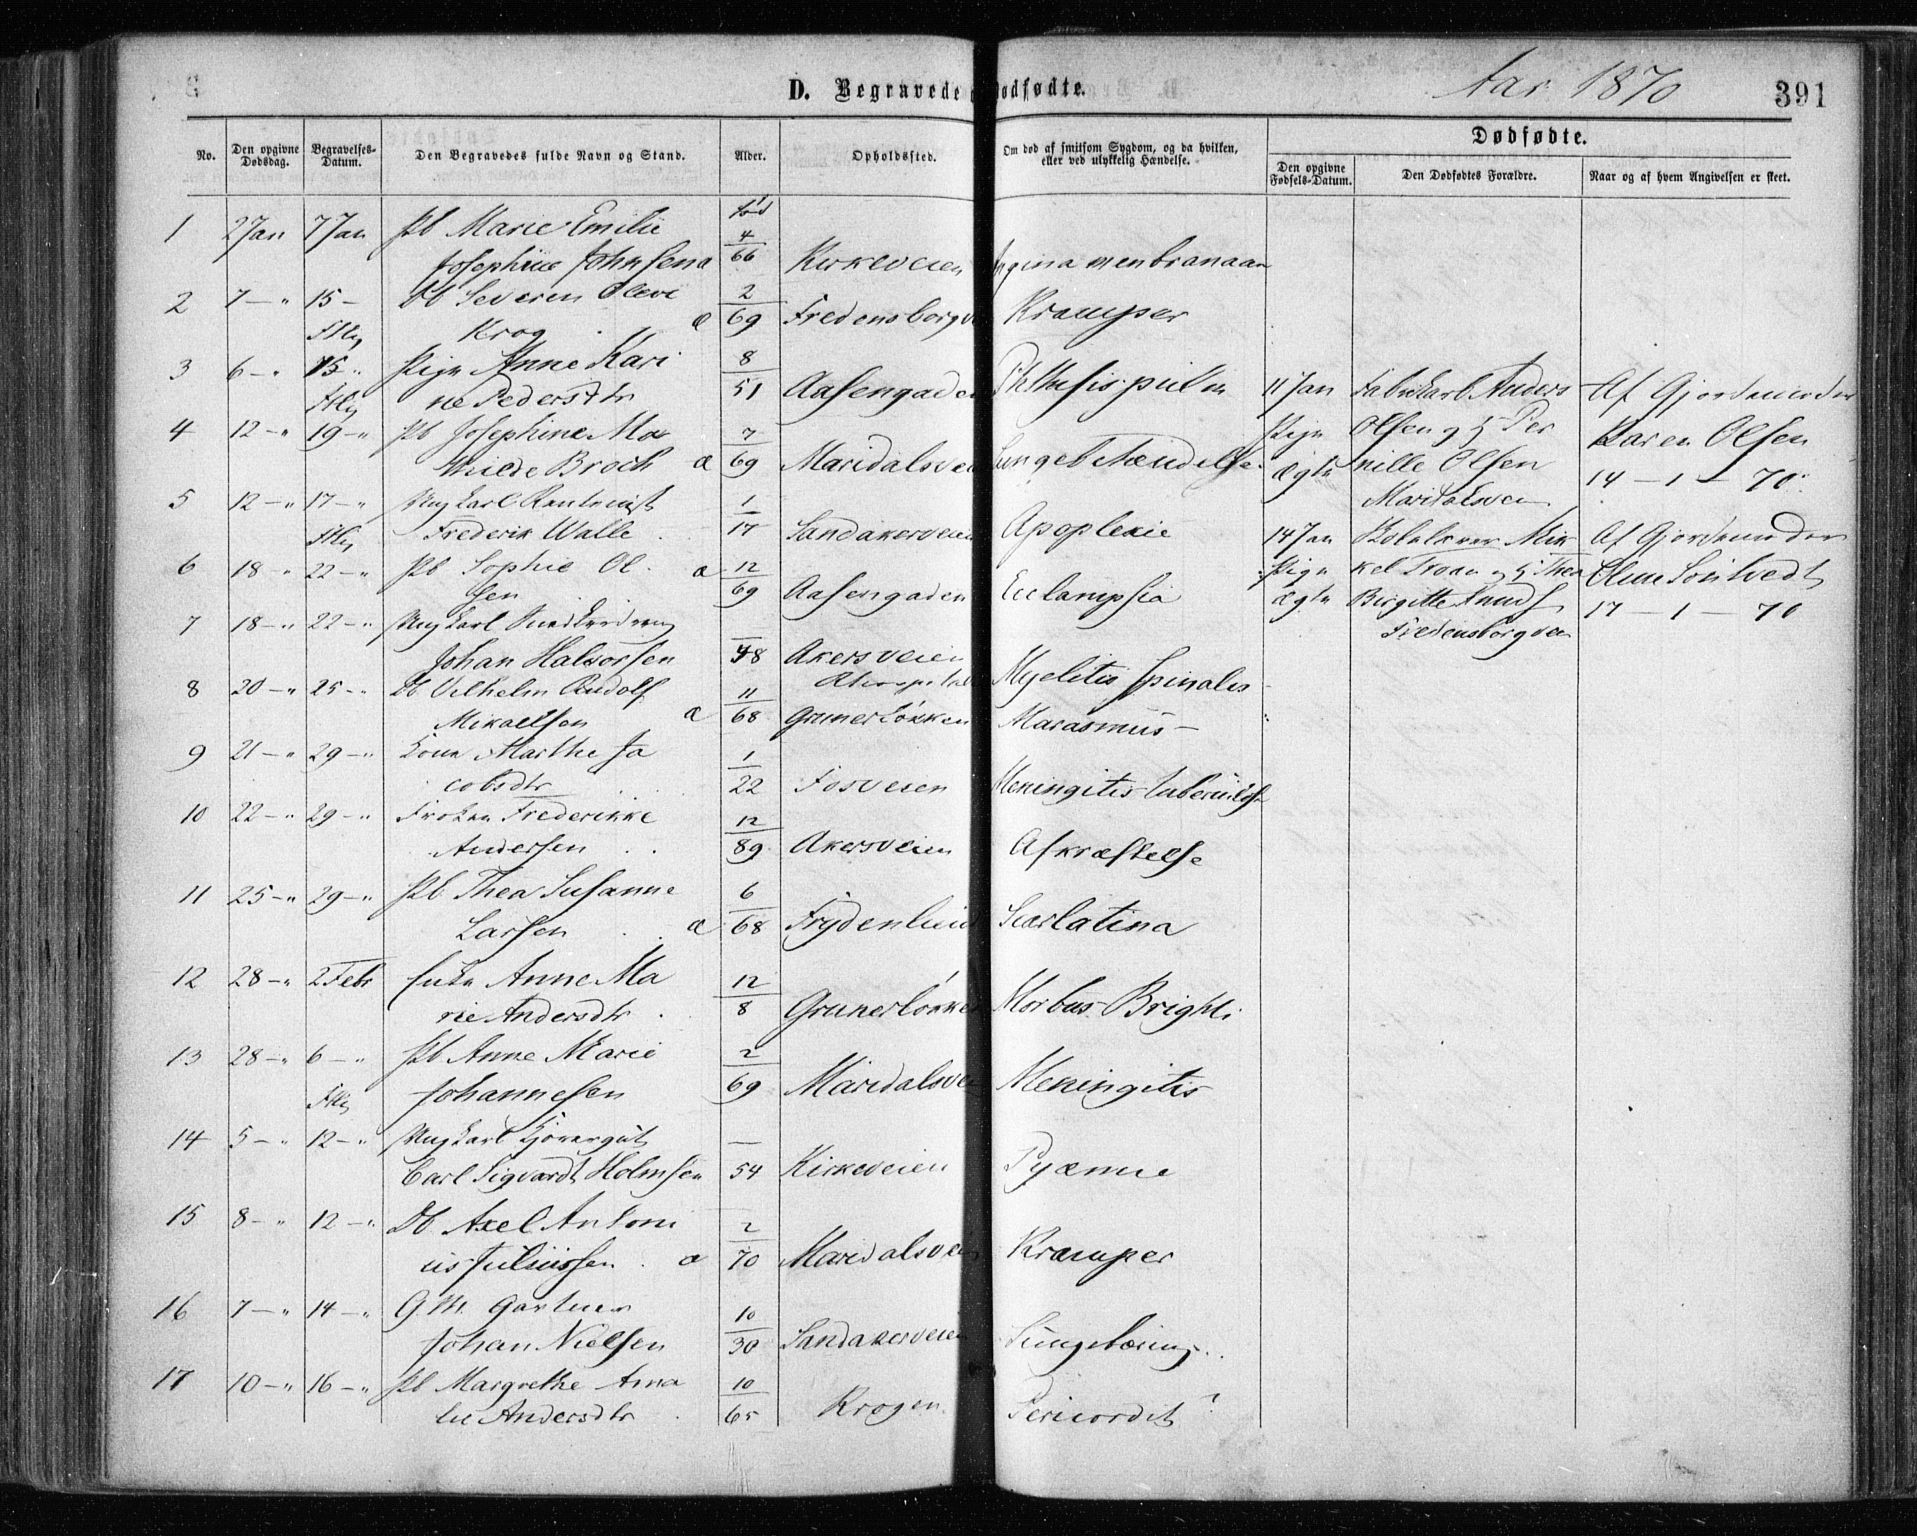 D. Begravede Dødfødte.
Aar 1870
391
No.
Den opgivne Dødsdag.
Begravelses-Datum.
Den Begravedes fulde Navn og Stand.
Alder.
Opholdssted.
Om død af smitsom Sygdom, og da hvilken, eller ved ulykkelig Hændelse.
Dødfødte.
Den opgivne Fødsels-Datum.
Den Dødfødtes Forældre.
Naar og af hvem Angivelsen er skeet.
1 2 Jan 7 Jan Pb Marie Emilie
Josephine Johnsen 4/66 Kirkeveien Angina membranaan
2 7 15 Db Severin
Krog 2/69 Fredensborgv Kramper
3 6 15 Pige Anne Kari
ne Pedersdtr 8/51 Aasengaden Phthisis pulm
4 12 19 Pb Josephine Ma
thilde Broch a 7/69 Maridalsvei Lungebetændelse
5 12 17 Ungkarl
Frederik Walle 1/17 Sandakerveien Apoplexie
6 18 22 Pb Sophie Ol
sen a 12/69 Aasengaden Eclampsia
7 18 22 Ungkarl
Johan Halvorsen 48 Akersveien
Myelitis spinalis
8 20 25 Db Vilhelm Rudolf
Mikaelsen a 11/68 Grünerløkken Marasmus
9 21 29 Kone Marthe Ja
cobsdtr 1/22 Fosveien Meningitis tuberculosa
10 22 29 Frøken Frederikke
Andersen 12/89 Akersveien Afkræftelse
11 25 29 Pb Thea Susanne
Larsen a 6/68 Frydenlund Scarlatina
12 28 2 Febr Enke Anne Ma
rie Andersdtr 12/8 Grünerløkken Morbus Brighti
13 28 6 Pb Anne Marie
Johannesen 2/69 Maridalsvei Meningitis
14 5 12 Ungkarl
Carl Sigvardt Holmsen 54 Kirkeveien Pyæmie
15 8 12 Db Axel Antoni
us Juliussen a 2/70 Maridalsvei Kramper
16 7 14 G.M. Gartner
Johan Nielsen 10/30 Sandakerveien Lungetæring
17 10 16 Pb Margrethe Ama
lie Andersdtr 10/65 Krogen Pericardit
11 Jan Fabrikarb Anders
Pige Olsen og H Per
ægte nille Olsen
Maridalsvei
Af Gjordemoder
Karen Olsen
14 – 1 – 70
14 Jan Skolelærer Mik
Pige kel Troan og H Thea
ægte Birgitte Knuds
Fredensborgvei
Af Gjordemoder
17 – 1 – 70